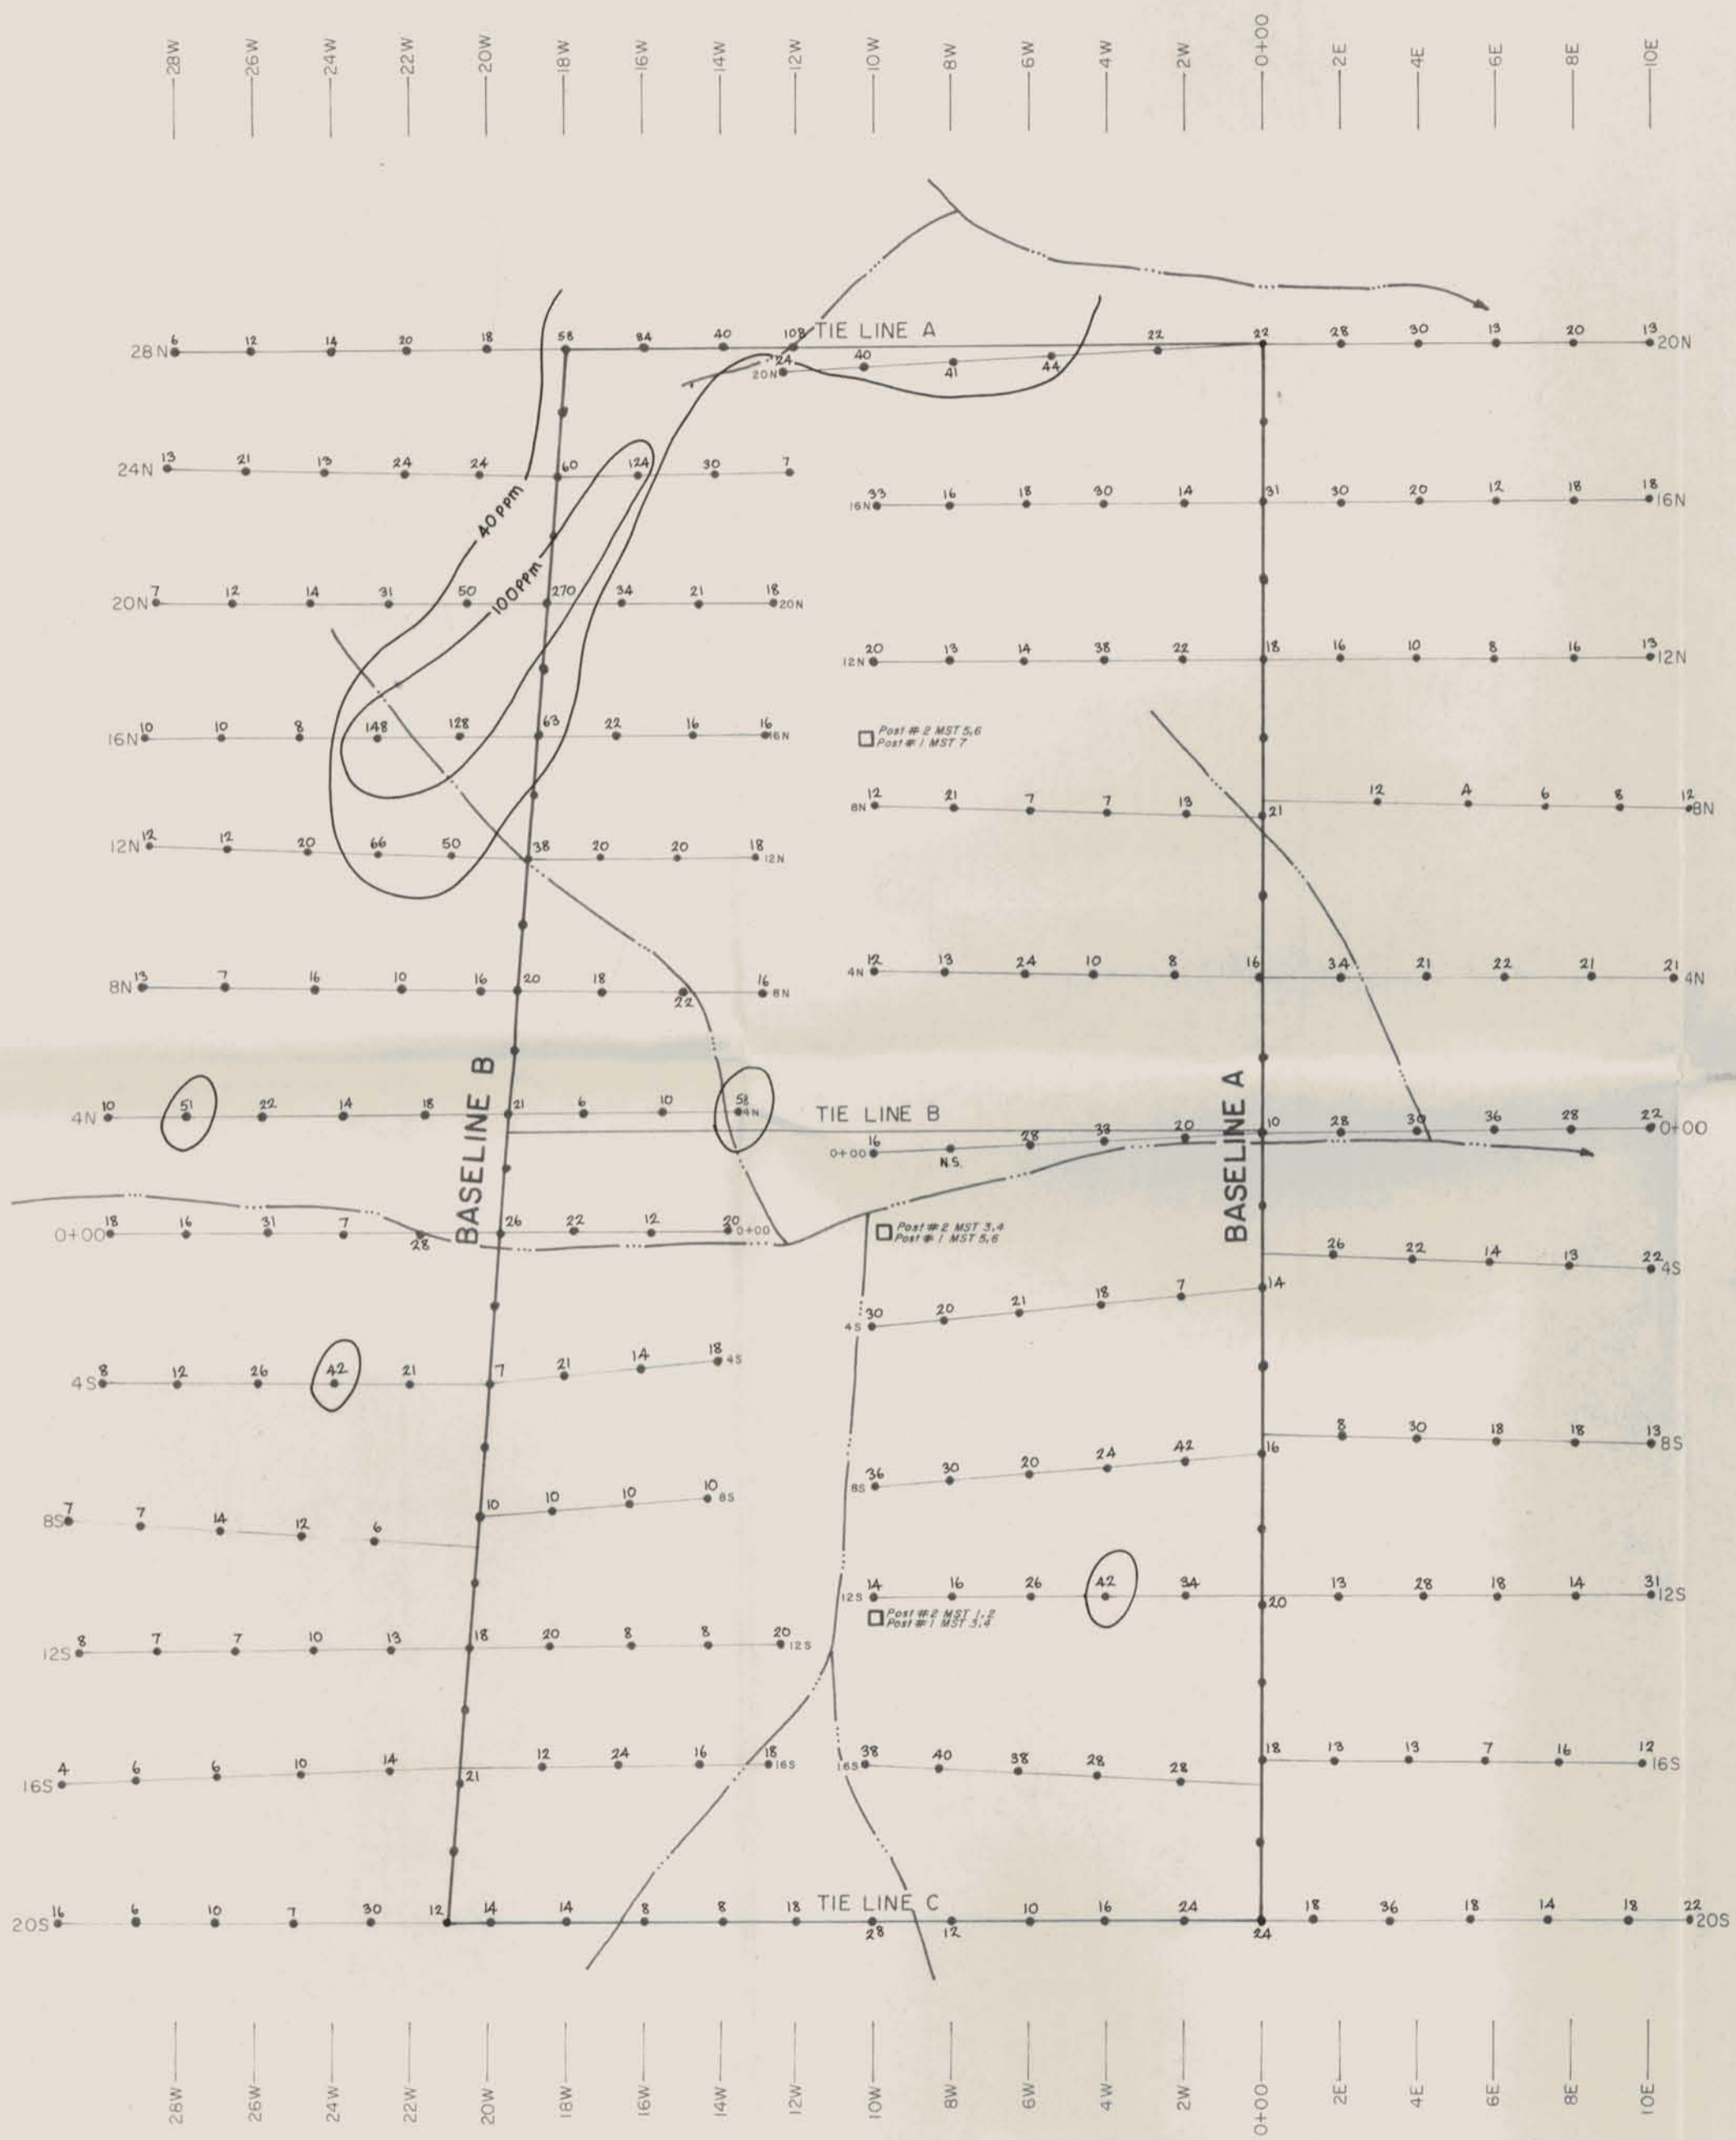 28W 26W 24W 22W 20W 18W 16W 14W 12W 10W 8W 6W 4W 2W 0+00 2E 4E 6E 8E 10E
TIE LINE A
28N 6 12 14 20 18 58 84 40 108 22 22 28 30 13 20 13 20N
20N 24 40 41 44
24N 13 21 13 24 24 60 124 30 7
40 PPM
16N 33 16 18 30 14 31 30 20 12 18 18 16N
100PPM
20N 7 12 14 31 50 270 34 21 18 20N
12N 20 13 14 38 22 18 16 10 8 16 13 12N
16N 10 10 8 148 128 63 22 16 16 16N
Post # 2 MST 5,6
Post # 1 MST 7
8N 12 21 7 7 13 21 12 4 6 8 12 8N
12N 12 12 20 66 50 38 20 20 18 12N
4N 12 13 24 10 8 16 34 21 22 21 21 4N
8N 13 7 16 10 16 20 18 22 16 8N
BASELINE B
BASELINE A
4N 10 51 22 14 18 21 6 10 58 4N
TIE LINE B
0+00 16 N.S. 28 33 20 10 28 30 36 28 22 0+00
0+00 18 16 31 7 28 26 22 12 20 0+00
Post # 2 MST 3,4
Post # 1 MST 5,6
26 22 14 13 22 4S
4S 30 20 21 18 7 14
4S 8 12 26 42 21 7 21 14 18 4S
8 30 18 18 13 8S
8S 36 30 20 24 42 16
8S 7 7 14 12 6 10 10 10 10 8S
12S 14 16 26 42 34 20 13 28 18 14 31 12S
Post # 2 MST 1,2
Post # 1 MST 3,4
12S 8 7 7 10 13 18 20 8 8 20 12S
16S 4 6 6 10 14 21 12 24 16 18 16S
16S 38 40 38 28 28 18 13 13 7 16 12 16S
TIE LINE C
20S 16 6 10 7 30 12 14 14 8 8 18 28 12 10 16 24 24 18 36 18 14 18 22 20S
28W 26W 24W 22W 20W 18W 16W 14W 12W 10W 8W 6W 4W 2W 0+00 2E 4E 6E 8E 10E